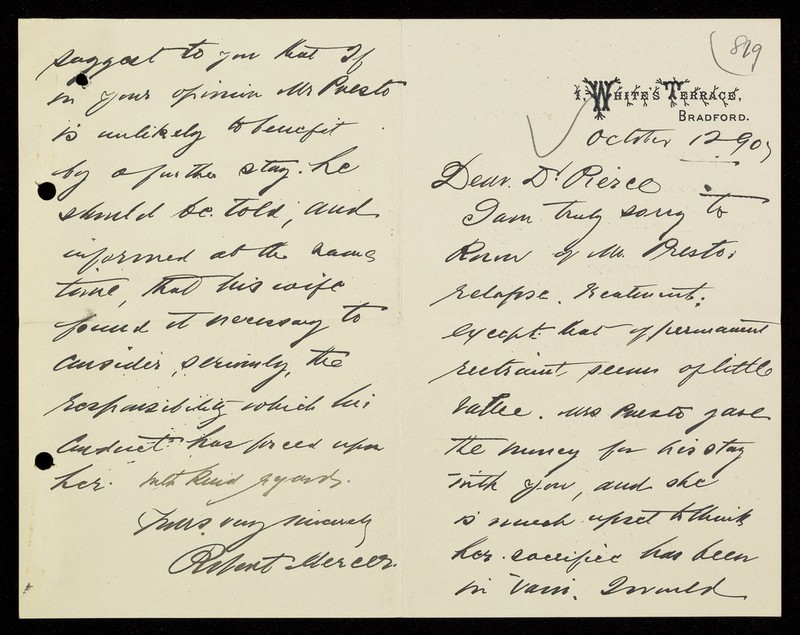 819
1, White's Terrace,
Bradford.
October 12 1903
Dear Dr Pierce
I am truly sorry to
know of Mr. Presto's
relapse. Treatment,
except that of permanent
restraint, seems of little
value. Mrs Presto gave
the money for his stay
with you, and she
is much upset to think
her sacrifice has been
in vain. I would
suggest to you that if
in your opinion Mr Presto
is unlikely to benefit
by a further stay. he
should be told, and
informed at the same
time, that his wife
found it necessary to
consider, seriously, the
responsibility which his
conduct has forced upon
her. With kind regards.
Yours very sincerely
Rupert Mercer.